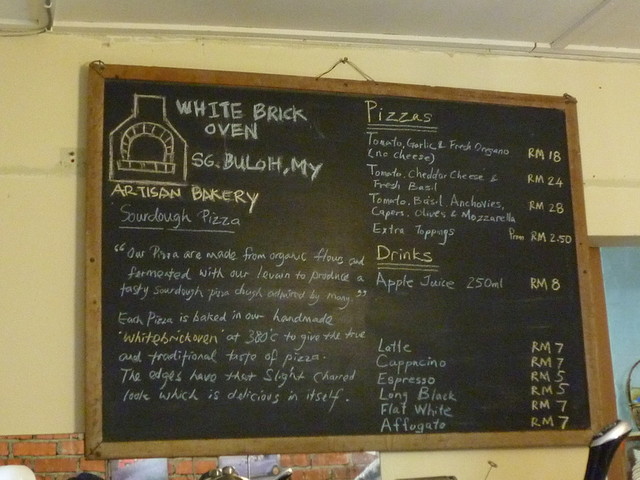 WHITE BRICK
OVEN
SG. BULOH, MY
ARTISAN BAKERY
Sourdough Pizza
"Our Pizza are made from organic flour and
fermented with our levain to produce a
tasty sourdough pizza dough admired by many."
Each Pizza is baked in our handmade
'whitebrickoven' at 380°c to give the true
and traditional taste of pizza.
The edges have that slight charred
look which is delicious in itself.
Pizzas
Tomato, Garlic & Fresh Oregano
(no cheese) RM 18
Tomato, Cheddar Cheese &
Fresh Basil RM 24
Tomato, Basil, Anchovies,
Capers, Olives & Mozzarella RM 28
Extra Toppings From RM 2.50
Drinks
Apple Juice 250ml RM 8
Latte RM 7
Cappucino RM 7
Espresso RM 5
Long Black RM 5
Flat White RM 7
Affogato RM 7